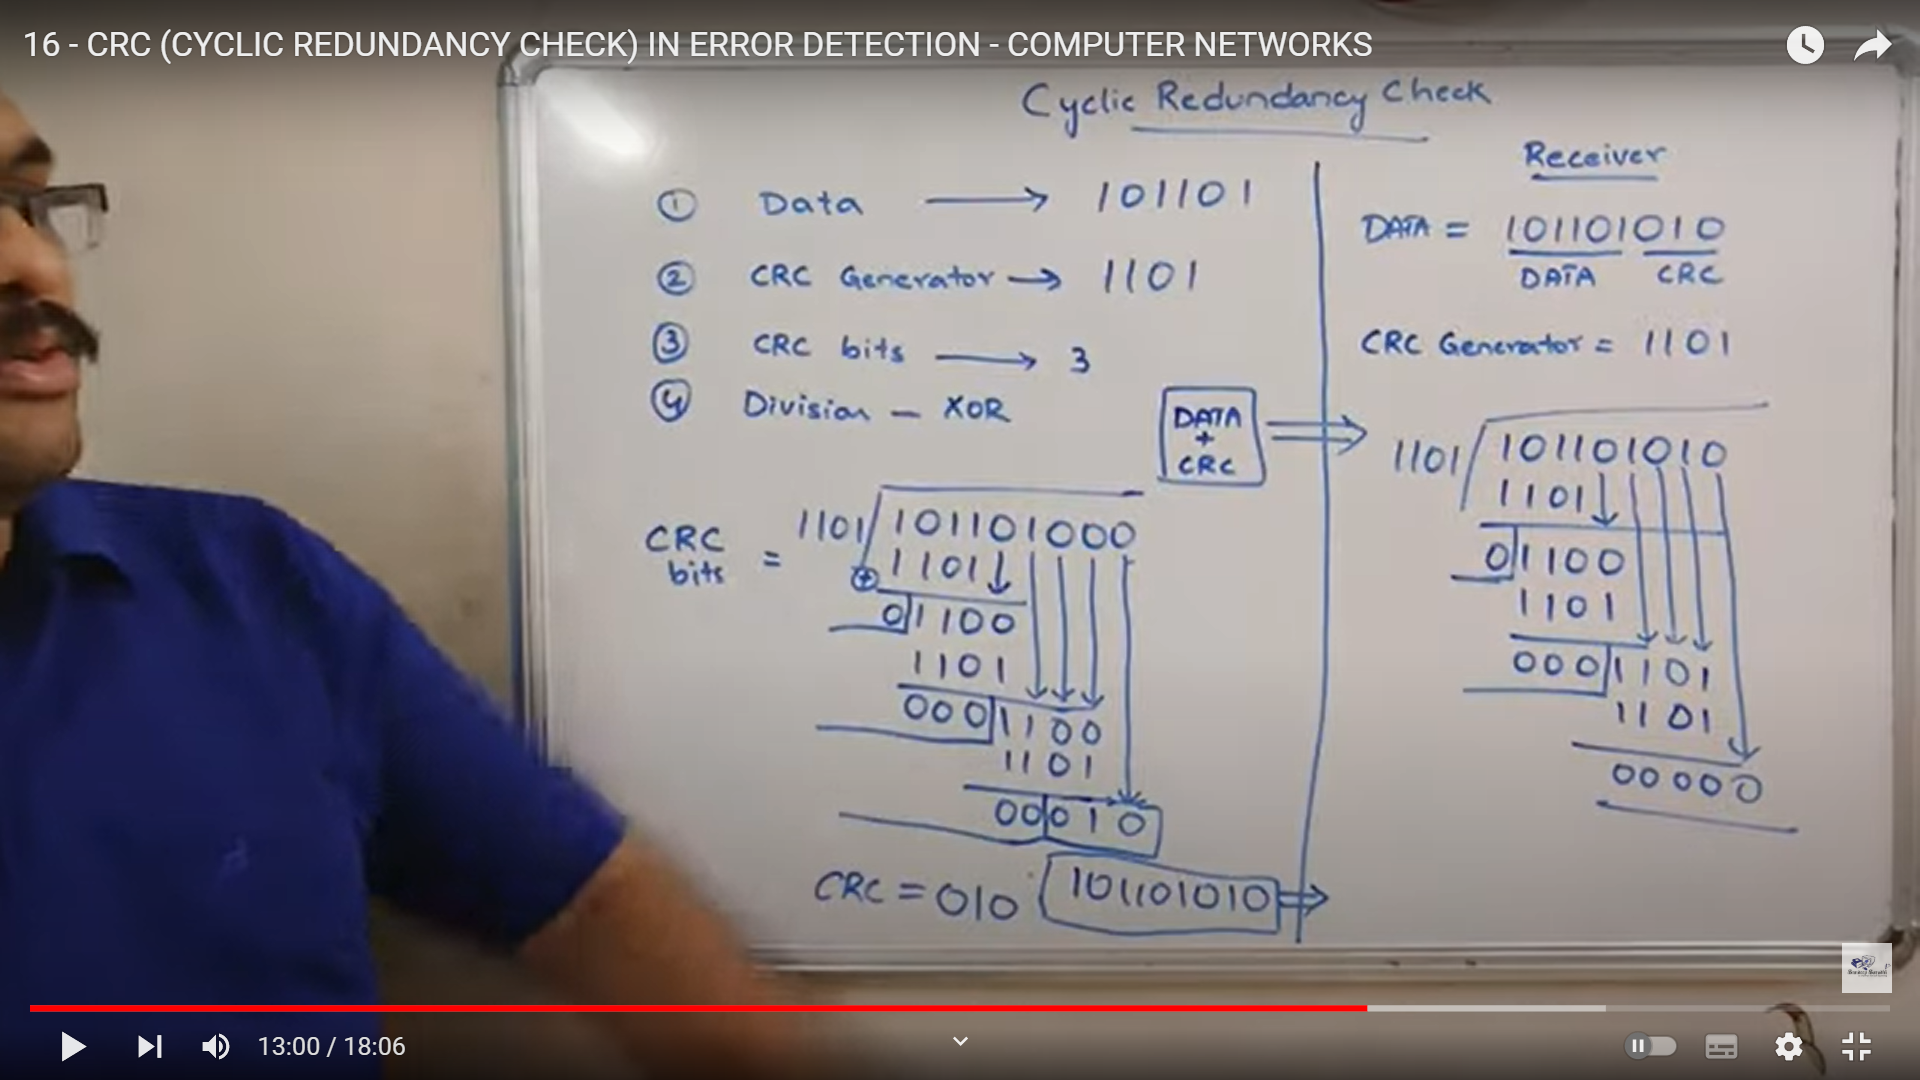 16 - CRC (CYCLIC REDUNDANCY CHECK) IN ERROR DETECTION - COMPUTER NETWORKS
Cyclic Redundancy Check
① Data → 101101
② CRC Generator → 1101
③ CRC bits → 3
④ Division - XOR
DATA
+
CRC
CRC bits =
1101 101101000
⊕ 1101
01100
1101
0001100
1101
00010
CRC = 010 101101010
Receiver
DATA = 101101010
DATA CRC
CRC Generator = 1101
1101 101101010
1101
01100
1101
0001101
1101
00000
13:00 / 18:06